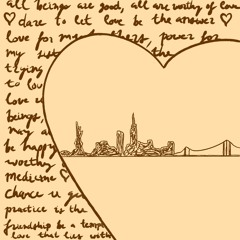 all beings are good, all are worthy of love
♡ dare to let love be the answer ♡
love for my brothers, power for
my sist the
trying
to lov
love i
beings,
may a
be happ
worthy
medicine ♡
chance u ge
practice is the
friendship be a temp
love that lies with